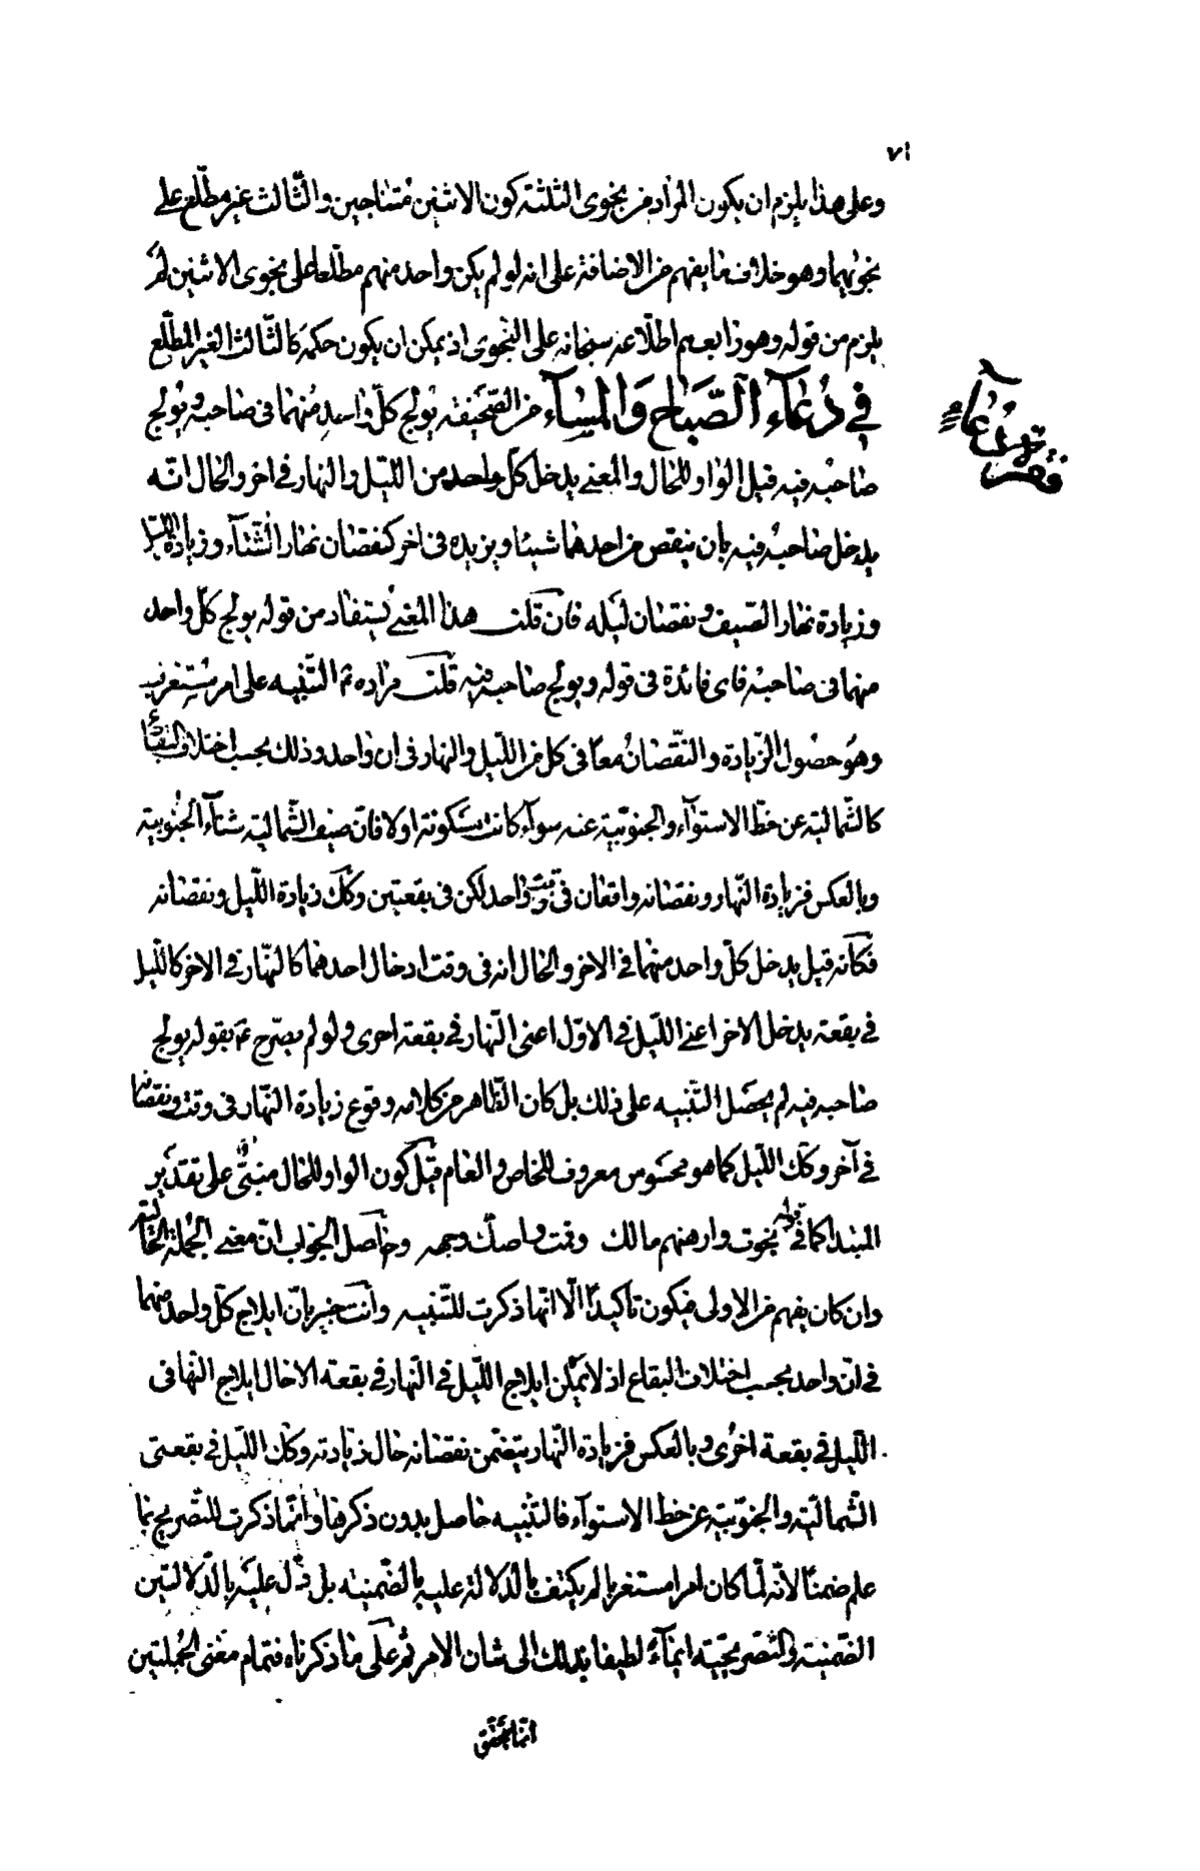 ٧١
وعلى هذا يلزم ان يكون المراد من نجوى الثلثة كون الاثنين متناجيين والثالث غير مطلع على
نجويهما وهو خلاف ما يفهم من الاضافة على انه لو لم يكن واحد منهم مطلعا على نجوى الاثنين لم
يلزم من قوله وهو رابعهم اطلاعه سبحانه على النجوى اذ يمكن ان يكون حكمه كالثالث الغير المطلع
في دُعاءِ الصَّباح وَالمساء من الصحيفة يولج كل واحد منهما في صاحبه ويولج
صاحبه فيه قيل الواو للحال والمعنى يدخل كل واحد من الليل والنهار في اخر والحال انه
يدخل صاحبه فيه بان ينقص من احدهما شيئا ويزيده في اخر كنقصان نهار الشتاء وزيادة ليله
وزيادة نهار الصيف ونقصان ليله فان قلت هذا المعنى يستفاد من قوله يولج كل واحد
منهما في صاحبه فاى فائدة في قوله ويولج صاحبه فيه قلت مراده ع التنبيه على امر مستغرب
وهو حصول الزيادة والنقصان معا في كل من الليل والنهار في ان واحد وذلك بحسب اختلاف البقاع
كالشمالية عن خط الاستواء والجنوبية عنه سواء كانت مسكونة اولا فان صيف الشمالية شتاء الجنوبية
وبالعكس فزيادة النهار ونقصانه واقعان في وقت واحد لكن في بقعتين وكك زيادة الليل ونقصانه
فكانه قيل يدخل كل واحد منهما في الاخر والحال انه في وقت ادخال احدهما كالنهار في الاخر كالليل
في بقعة يدخل الاخر اعنى الليل في الاول اعنى النهار في بقعة اخرى ولو لم يصرح ع بقوله يولج
صاحبه فيه لم يحصل التنبيه على ذلك بل كان الظاهر من كلامه وقوع زيادة النهار في وقت ونقصانه
في آخر وكك الليل كما هو محسوس معروف للخاص والعام قيل كون الواو للحال مبنى على تقدير
المبتدا كما في قوله نجوت وارهنهم مالك وقمت واصك وجهه وحاصل الجواب ان معنى الجملة الحالية
وان كان يفهم من الاولى فيكون تاكيدًا الّا انّها ذكرت للتنبيه وانت خبير بان ايلاج كل واحد منهما
في ان واحد بحسب اختلاف البقاع اذ لا يمكن ايلاج الليل في النهار في بقعة الا حال ايلاج النها في
الليل في بقعة اخرى وبالعكس فزيادة النهار يتضمن نقصانه حال زيادته وكك الليل في بقعتى
الشمالية والجنوبية عن خط الاستواء فالتنبيه حاصل بدون ذكرها وانما ذكرت للتصريح بما
علم ضمنا لانه لما كان امرا مستغربا لم يكتف بالدلالة عليه بالضمنية بل دل عليه بالدلالتين
الضمنية والتصريحية ايماءً لطيفا بذلك الى شان الامر ثم على ما ذكرناه فتمام معنى الجملتين
انما يتحقق